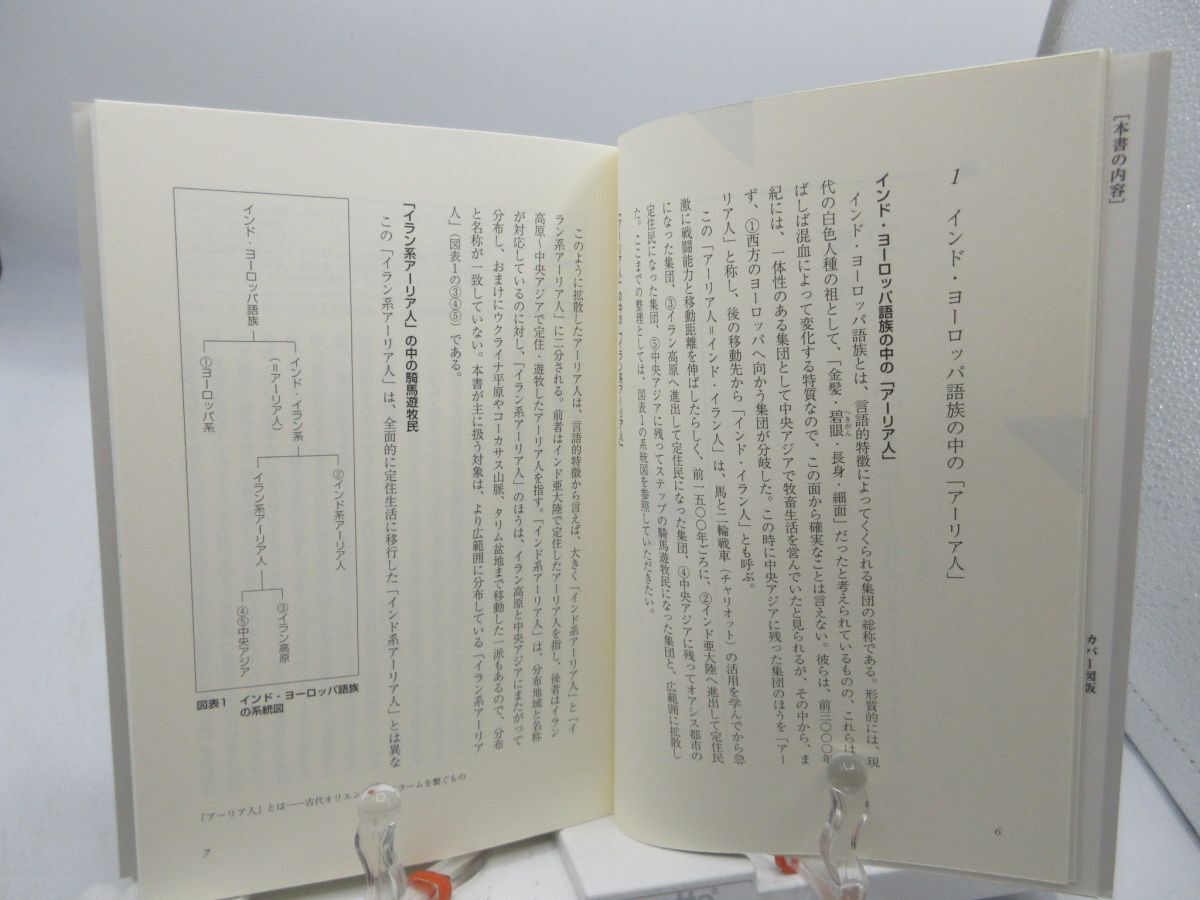 [本書の内容]
カバー図版
1 インド・ヨーロッパ語族の中の「アーリア人」
インド・ヨーロッパ語族の中の「アーリア人」
インド・ヨーロッパ語族とは、言語的特徴によってくくられる集団の総称である。形質的には、現
代の白色人種の祖として、「金髪・碧眼・長身・細面」だったと考えられているものの、これらは
へきがん
ばしば混血によって変化する特質なので、この面から確実なことは言えない。彼らは、前三〇〇〇年
紀には、一体性のある集団として中央アジアで牧畜生活を営んでいたと見られるが、その中から、ま
ず、①西方のヨーロッパへ向かう集団が分岐した。この時に中央アジアに残った集団のほうを「アー
リア人」と称し、後の移動先から「インド・イラン人」とも呼ぶ。
この「アーリア人＝インド・イラン人」は、馬と二輪戦車（チャリオット）の活用を学んでから急
激に戦闘能力と移動距離を伸ばしたらしく、前一五〇〇年ごろに、②インド亜大陸へ進出して定住民
になった集団、③イラン高原へ進出して定住民になった集団、④中央アジアに残ってオアシス都市の
定住民になった集団、⑤中央アジアに残ってステップの騎馬遊牧民になった集団と、広範囲に拡散し
た。ここまでの整理としては、図表1の系統図を参照していただきたい。
「アーリア人」の中の「イラン系アーリア人」
6
このように拡散したアーリア人は、言語的特徴から言えば、大きく「インド系アーリア人」と「イ
ラン系アーリア人」に二分される。前者はインド亜大陸で定住したアーリア人を指し、後者はイラン
高原〜中央アジアで定住・遊牧したアーリア人を指す。「インド系アーリア人」は、分布地域と名称
が対応しているのに対し、「イラン系アーリア人」のほうは、イラン高原と中央アジアにまたがって
分布し、おまけにウクライナ平原やコーカサス山脈、タリム盆地まで移動した一派もあるので、分布
と名称が一致していない。本書が主に扱う対象は、より広範囲に分布している「イラン系アーリア
人」（図表1の③④⑤）である。
「イラン系アーリア人」の中の騎馬遊牧民
この「イラン系アーリア人」は、全面的に定住生活に移行した「インド系アーリア人」とは異な
インド・ヨーロッパ語族
インド・イラン系
(＝アーリア人)
①ヨーロッパ系
②インド系アーリア人
イラン系アーリア人
③イラン高原
④⑤中央アジア
図表1 インド・ヨーロッパ語族
の系統図
「アーリア人」とは——古代オリエン
ラームを繋ぐもの
7